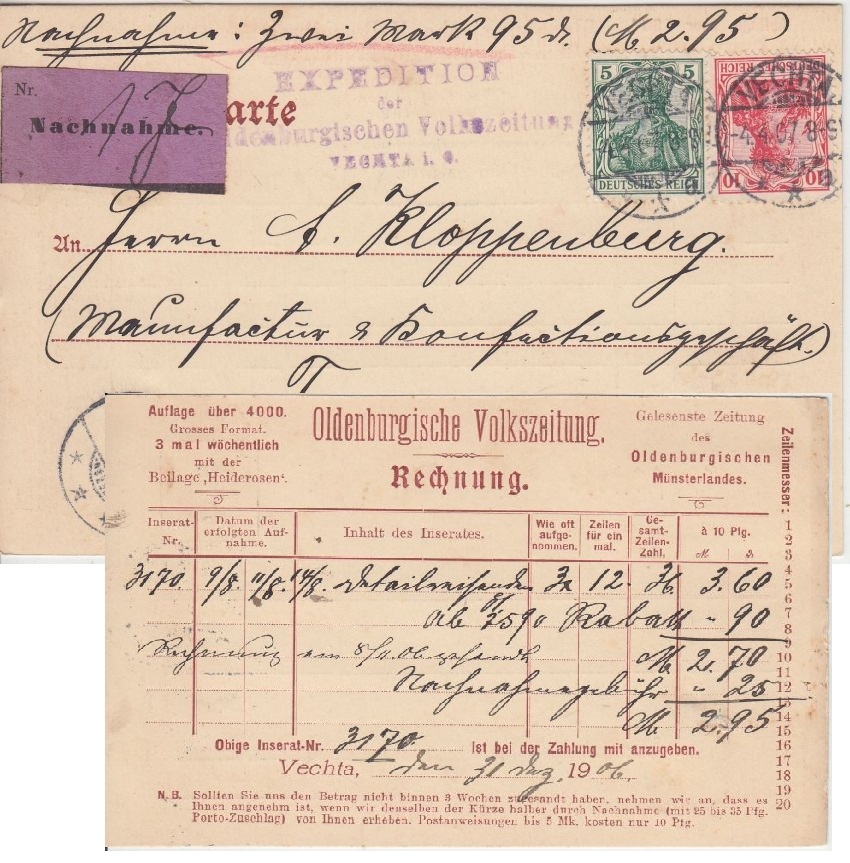 Nachnahme: Zwei Mark 95 d. (M 2.95)
EXPEDITION
der
Oldenburgischen Volkszeitung
VECHTA i. O.
Nr.
Nachnahme.
arte
5 5
DEUTSCHES REICH
DEUTSCHES REICH
10 10
VECHTA
4.4.07. 8-9
a
An Herrn C. Kloppenburg.
(Manufactur & Konfectionsgeschäft.)
Auflage über 4000.
Grosses Format.
3 mal wöchentlich
mit der
Beilage „Heiderosen“.
Oldenburgische Volkszeitung.
Rechnung.
Gelesenste Zeitung
des
Oldenburgischen
Münsterlandes.
Zeilenmesser:
Inserat-Nr. Datum der erfolgten Aufnahme. Inhalt des Inserates. Wie oft aufgenommen. Zeilen für ein mal. Gesamt-Zeilen-Zahl. à 10 Pfg. M ₰
3170 9/8. 11/8. 14/8. Detailreisender 3x 12. 36. 3.60
ab 25% Rabatt " 90
Rechnung am 8/11 06 gesandt M. 2.70
Nachnahmegebühr " 25
M. 2.95
Obige Inserat-Nr. 3170. ist bei der Zahlung mit anzugeben.
Vechta, den 31 Dez 1906.
N. B. Sollten Sie uns den Betrag nicht binnen 3 Wochen zugesandt haben, nehmen wir an, dass es
Ihnen angenehm ist, wenn wir denselben der Kürze halber durch Nachnahme (mit 25 bis 35 Pfg.
Porto-Zuschlag) von Ihnen erheben. Postanweisungen bis 5 Mk. kosten nur 10 Pfg.
1
2
3
4
5
6
7
8
9
10
11
12
13
14
15
16
17
18
19
20